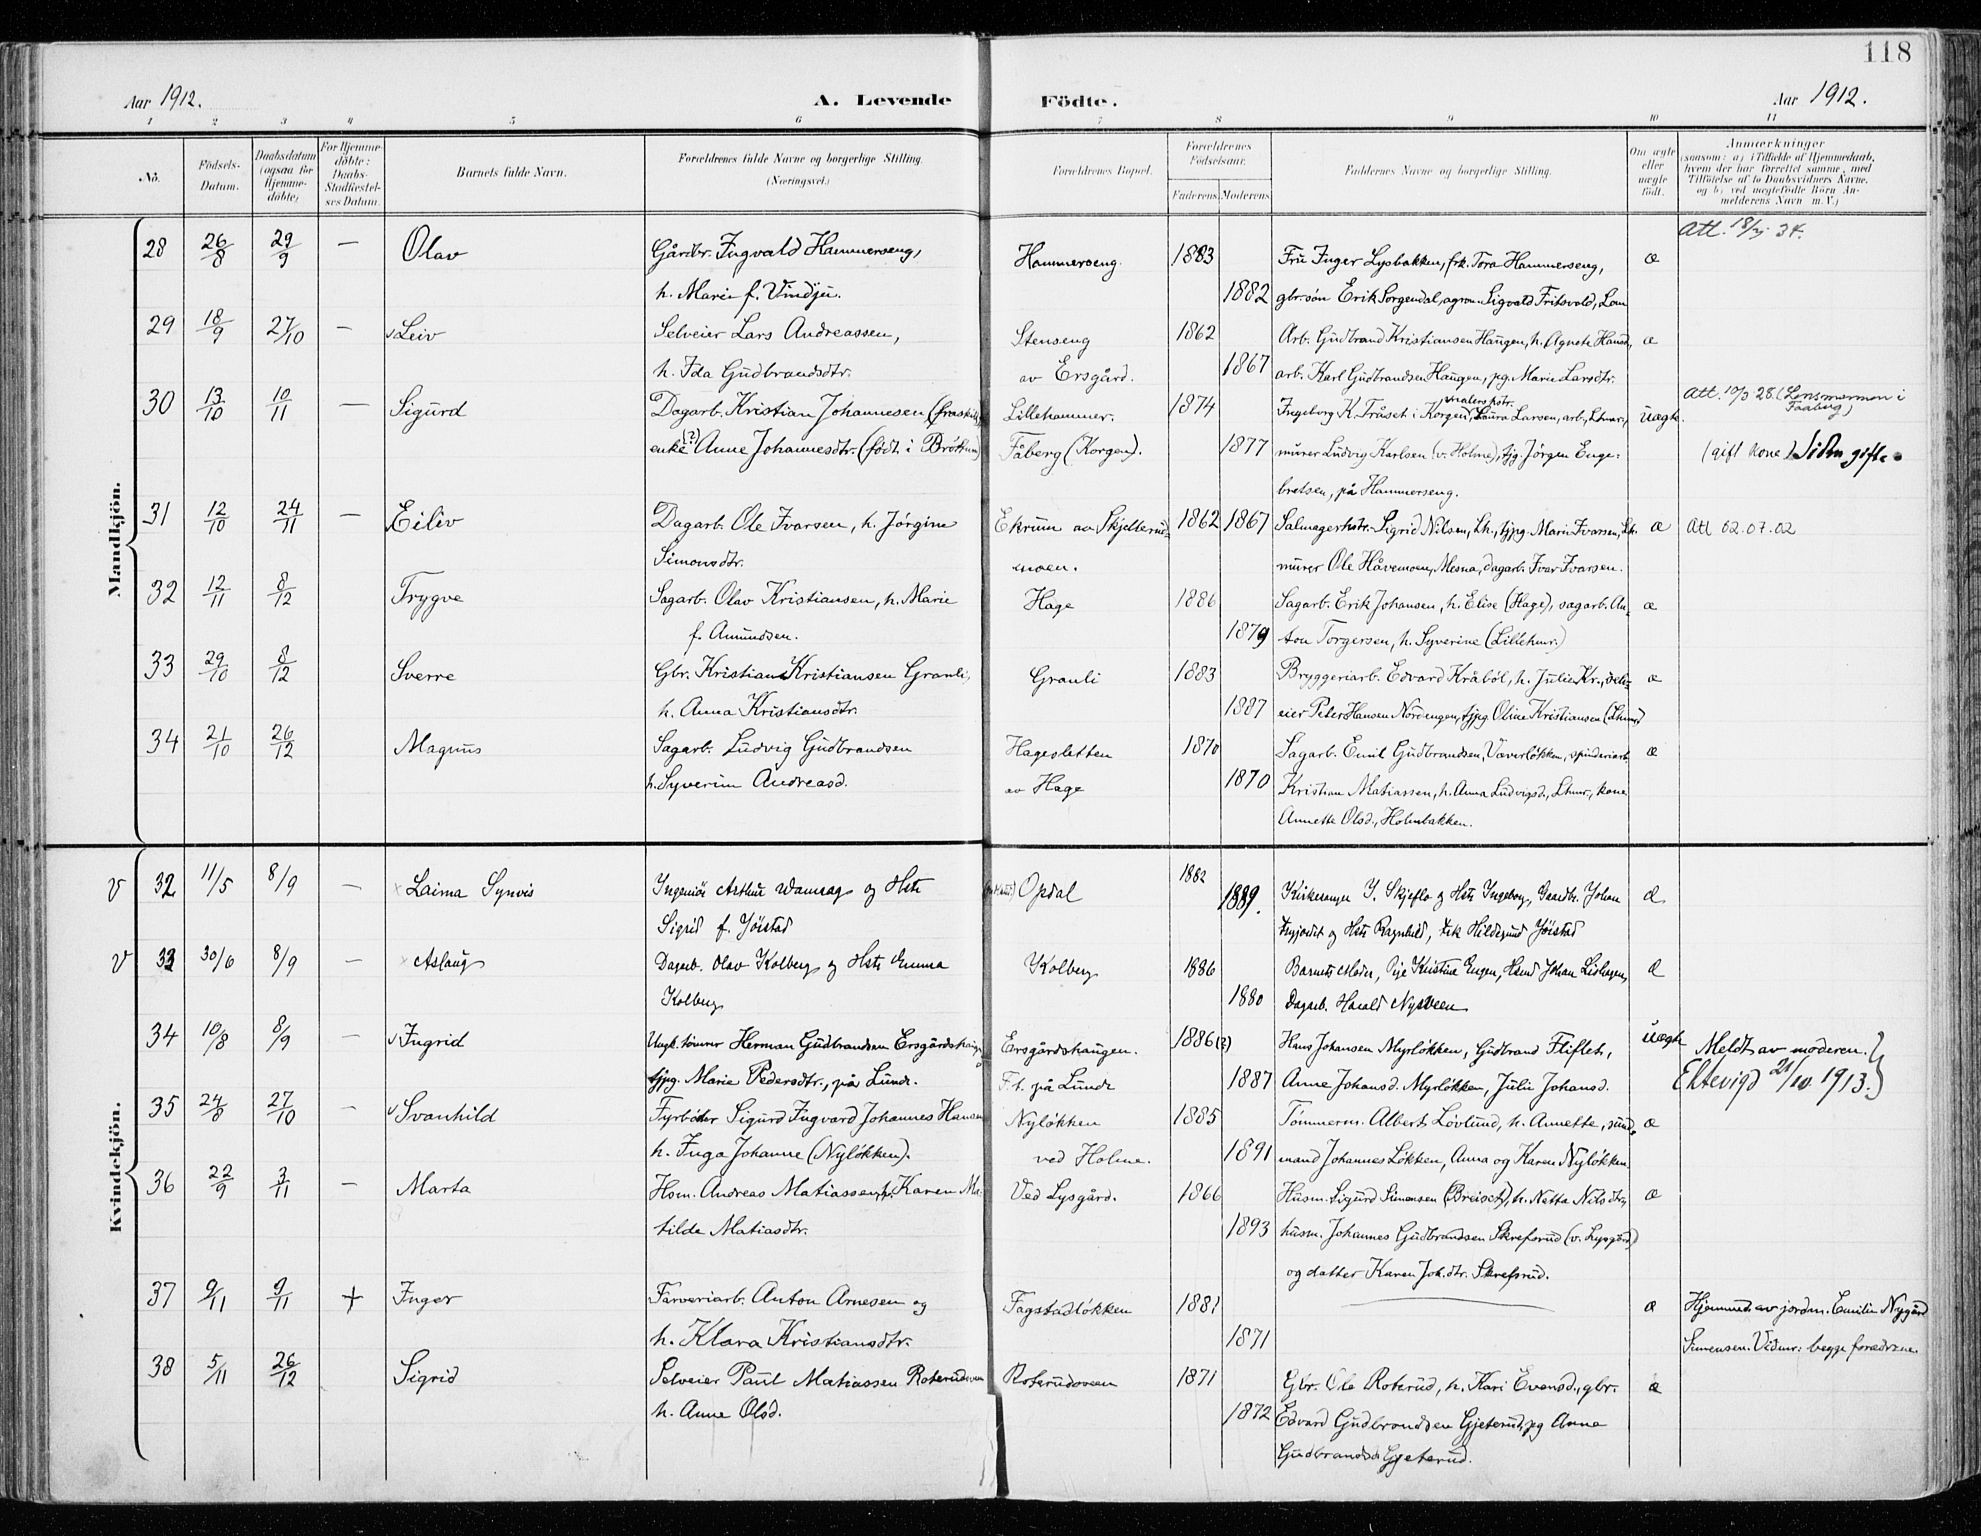 118
Aar 1912.
A. Levende Födte.
Aar 1912.
1 2 3 4 5 6 7 8 9 10 11
No.
Födsels-
Datum.
Daabsdatum
(ogsaa for
Hjemme-
döbte)
For Hjemme-
döbte:
Daabs-
Stadfæstel-
ses Datum.
Barnets fulde Navn.
Forældrenes fulde Navne og borgerlige Stilling.
(Næringsvei.)
Forældrenes Bopæl.
Forældrenes
Födselsaar.
Faderens. Moderens.
Faddernes Navne og borgerlige Stilling.
Om ægte
eller
uægte
födt.
Anmærkninger
(saasom: a) i Tilfælde af Hjemmedaab,
hvem der har forrettet samme, med
Tilföielse af to Daabsvidners Navne,
og b) ved uægtefödte Börn An-
melderens Navn m. V.)
Mandkjön.
28 26/8 29/9 — Olav Gårdbr. Ingvald Hammerseng, Hammerseng. 1883 Fru Inger Lysbakken, frk. Tora Hammerseng, æ Att. 34.
h. Marie f. Vindju. 1882 gbr.søn Erik Sorgendal, agron. Sigvald Fritsvold, Lom
29 18/9 27/10 — Leiv Selveier Lars Andreassen, Stenseng 1862 Arb. Gudbrand Kristiansen Haugen, h. Agnete Hansd., æ
h. Ida Gudbrandsdtr. av Ersgård. 1867 arb. Karl Gudbrandsen Haugen, pg. Marie Larsdtr.
30 13/10 10/11 — Sigurd Dagarb. Kristian Johannesen Lillehammer. 1874 Ingeborg K. Tråset i Korgen, Laura Larsen, arb., Lhmr., uægte. Att. 10/3 28. (Lensmannen i
Faaberg)
enke (?) Anne Johannesdtr. (født i Brøttum) Fåberg (Korgen). 1877 murer Ludvig Karlsen (v. Holme), tjg. Jørgen Enge- (gift kone) Siden gifte
bretsen, på Hammerseng.
31 12/10 24/11 — Eiliv Dagarb. Ole Ivarsen, h. Jørgine Ekrum av Skjelterud- 1862 1867 Sigrid Nilsen, Lh., tjpg. Marie Ivarsen, Lh. æ Att 02.07.02
Simonsdtr. moen. murer Ole Håvemoen, Mesna, dagarb. Ivar Ivarsen.
32 12/11 8/12 Trygve Sagarb. Olav Kristiansen, h. Marie Hage 1886 Sagarb. Erik Johansen, h. Elise (Hage), sagarb. An- æ
f. Amundsen. 1879 ton Torgersen, h. Syverine (Lillehmr.)
33 29/10 8/12 Sverre Gbr. Kristian Kristiansen Granli, Granli 1883 Bryggeriarb. Edvard Kråbøl, h. Julie Kr., selv- æ
h. Anna Kristiansdtr. 1887 eier Peter Hansen Nordengen, tjpg. Oline Kristiansen (Lhmr)
34 21/10 26/12 Magnus Sagarb. Ludvig Gudbrandsen Hagesletten 1870 Sagarb. Emil Gudbrandsen, Væverløkken, spinderiarb. æ
h. Syverine Andreasd. av Hage 1870 Kristian Matiassen, h. Anna Ludvigsd., Lhmr., kone
Annette Olsd., Holmbakken.
Kvindekjön.
V 32 11/5 8/9 — Laima Synvis Ingeniør Arthur Wannag og Hstr Opdal 1882 Kirkesanger I. Skjeflo og Hstr Ingeborg, Gaardbr. Johan æ
Sigrid f. Jøistad 1889. og Hstr Ragnhild, frk Hildegund Jøistad
V 33 30/6 8/9 — Aslaug Dagarb. Olav Kolberg og Hstr Emma Kolberg 1886 Barnets Moder, Pige Kristine Engen, Hsmd Johan Lishagen, æ
Kolberg 1880 Dagarb. Harald Nysveen
34 10/8 8/9 — Ingrid Ungk. tømrer Herman Gudbrandsen Ersgårdshaugen Ersgårdshaugen. 1886 (?) Hans Johansen Myrløkken, Gudbrand Fliflet, uægte Meldt av moderen.
tjpg. Marie Pedersdtr., på Lunde. F.t. på Lunde 1887 Anne Johansd. Myrløkken, Julie Johansd. Ektevigd 21/10 1913.
35 24/8 27/10 — Svanhild Fyrbøter Sigurd Ingvard Johannes Hansen Nyløkken 1885 Tømmerm. Albert Løvlund, h. Annette, æ
h. Inga Johanne (Nyløkken). ved Holme. 1891 mand Johannes Løkken, Anna og Karen Nyløkken.
36 22/9 3/11 — Marta Hsm. Andreas Matiassen, h. Karen Ma- Ved Lysgård. 1866 Husm. Sigurd Simensen (Breiset), h. Netta Nilsdtr., æ
tilde Matiasdtr. 1893 husm. Johannes Gudbrandsen Skrefsrud (v. Lysgård)
og datter Karen Joh.dtr. Skrefsrud.
37 9/11 9/11 + Inger Farveriarb. Anton Arnesen og Fagstadløkken 1881 æ Hjemmed. av jordm. Emilie Nygård
h. Klara Kristiansdtr. 1871 Simensen. Vidner: begge forældrene.
38 5/11 26/12 Sigrid Selveier Paul Matiassen Roterudsveen Roterudsveen 1871 Gbr. Ole Roterud, h. Kari Evensd., gbr. æ
h. Anne Olsd. 1872 Edvard Gudbrandsen Gjeterud, pg Anna
Gudbrandsd Gjeterud.